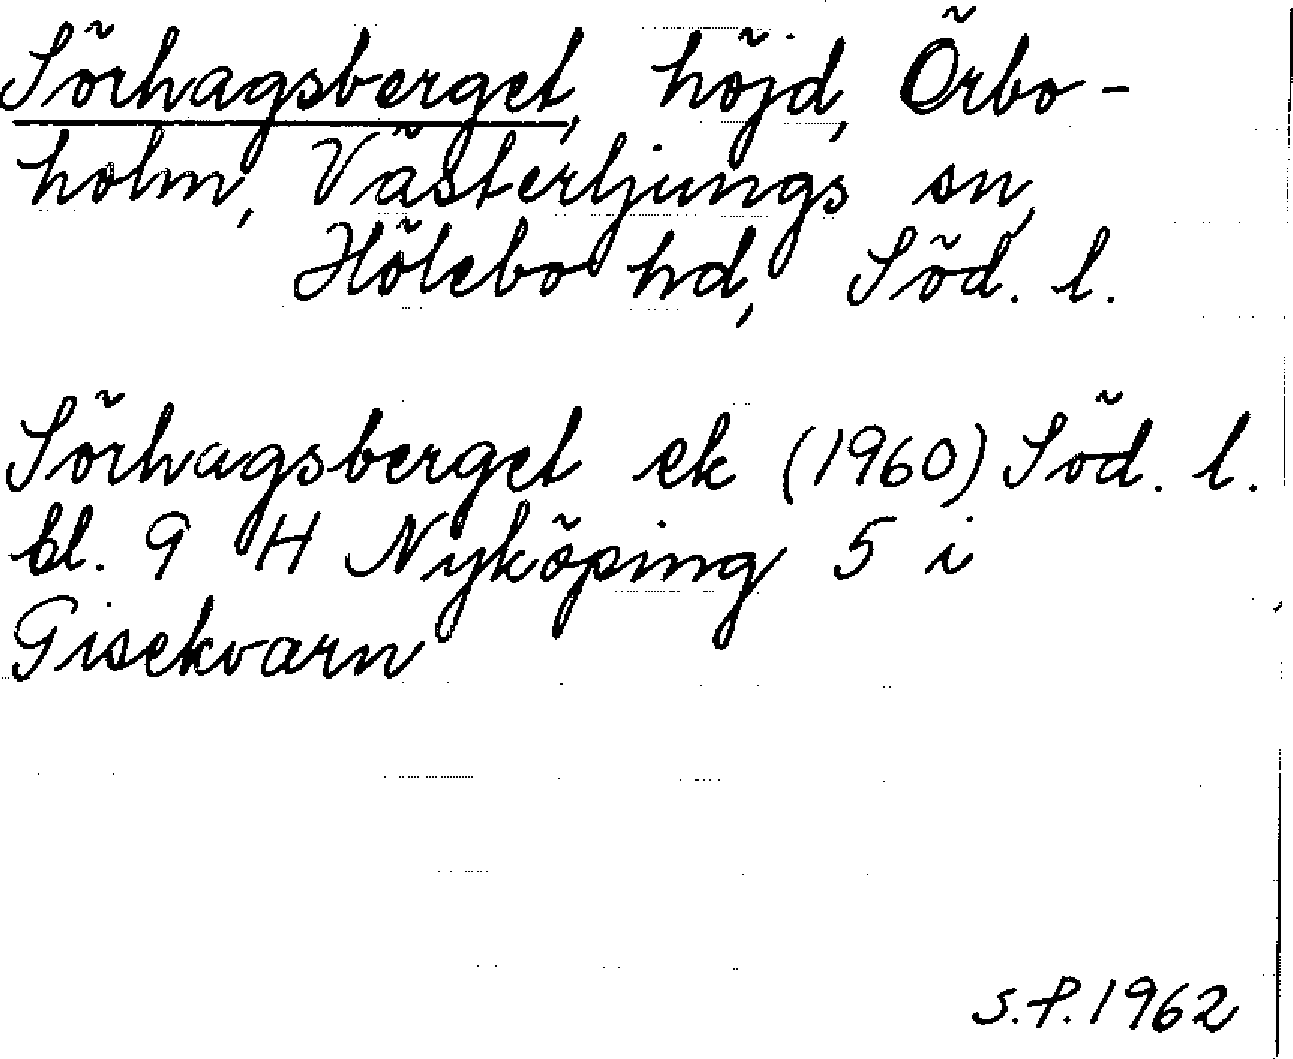 Sörhagsberget, höjd, Örbo-
holm, Västerljungs sn,
Hölebo hd, Söd. l.
Sörhagsberget ek (1960) Söd. l.
bl. 9 H Nyköping 5 i
Gisekvarn
S.P. 1962